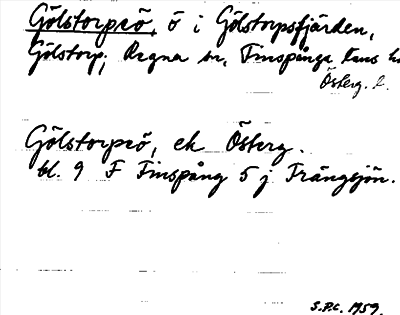 Gölstorpsö, ö i Gölstorpsfjärden,
Gölstorp, Regna sn, Finspånga läns h
Österg. l.
Gölstorpsö, ek Österg.
bl. 9 F Finspång 5 j Trängsjön.
S.P.C. 1959.